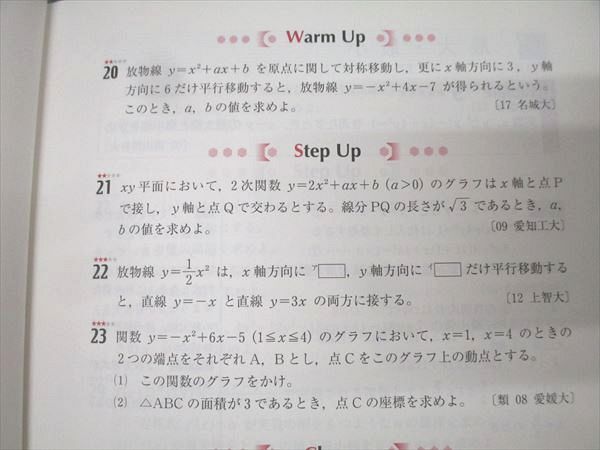 Warm Up
20 放物線 y=x²+ax+b を原点に関して対称移動し，更に x 軸方向に 3，y 軸
方向に 6 だけ平行移動すると，放物線 y=−x²+4x−7 が得られるという。
このとき，a，b の値を求めよ。 〔17 名城大〕
Step Up
21 xy 平面において，2次関数 y=2x²+ax+b (a>0) のグラフは x 軸と点 P
で接し，y 軸と点 Q で交わるとする。線分 PQ の長さが √3 であるとき，a，
b の値を求めよ。 〔09 愛知工大〕
22 放物線 y=1/2x² は，x 軸方向に ア□，y 軸方向に イ□ だけ平行移動する
と，直線 y=−x と直線 y=3x の両方に接する。 〔12 上智大〕
23 関数 y=−x²+6x−5 (1≦x≦4) のグラフにおいて，x=1，x=4 のときの
2つの端点をそれぞれ A，B とし，点 C をこのグラフ上の動点とする。
(1) この関数のグラフをかけ。
(2) △ABC の面積が 3 であるとき，点 C の座標を求めよ。 〔類 08 愛媛大〕